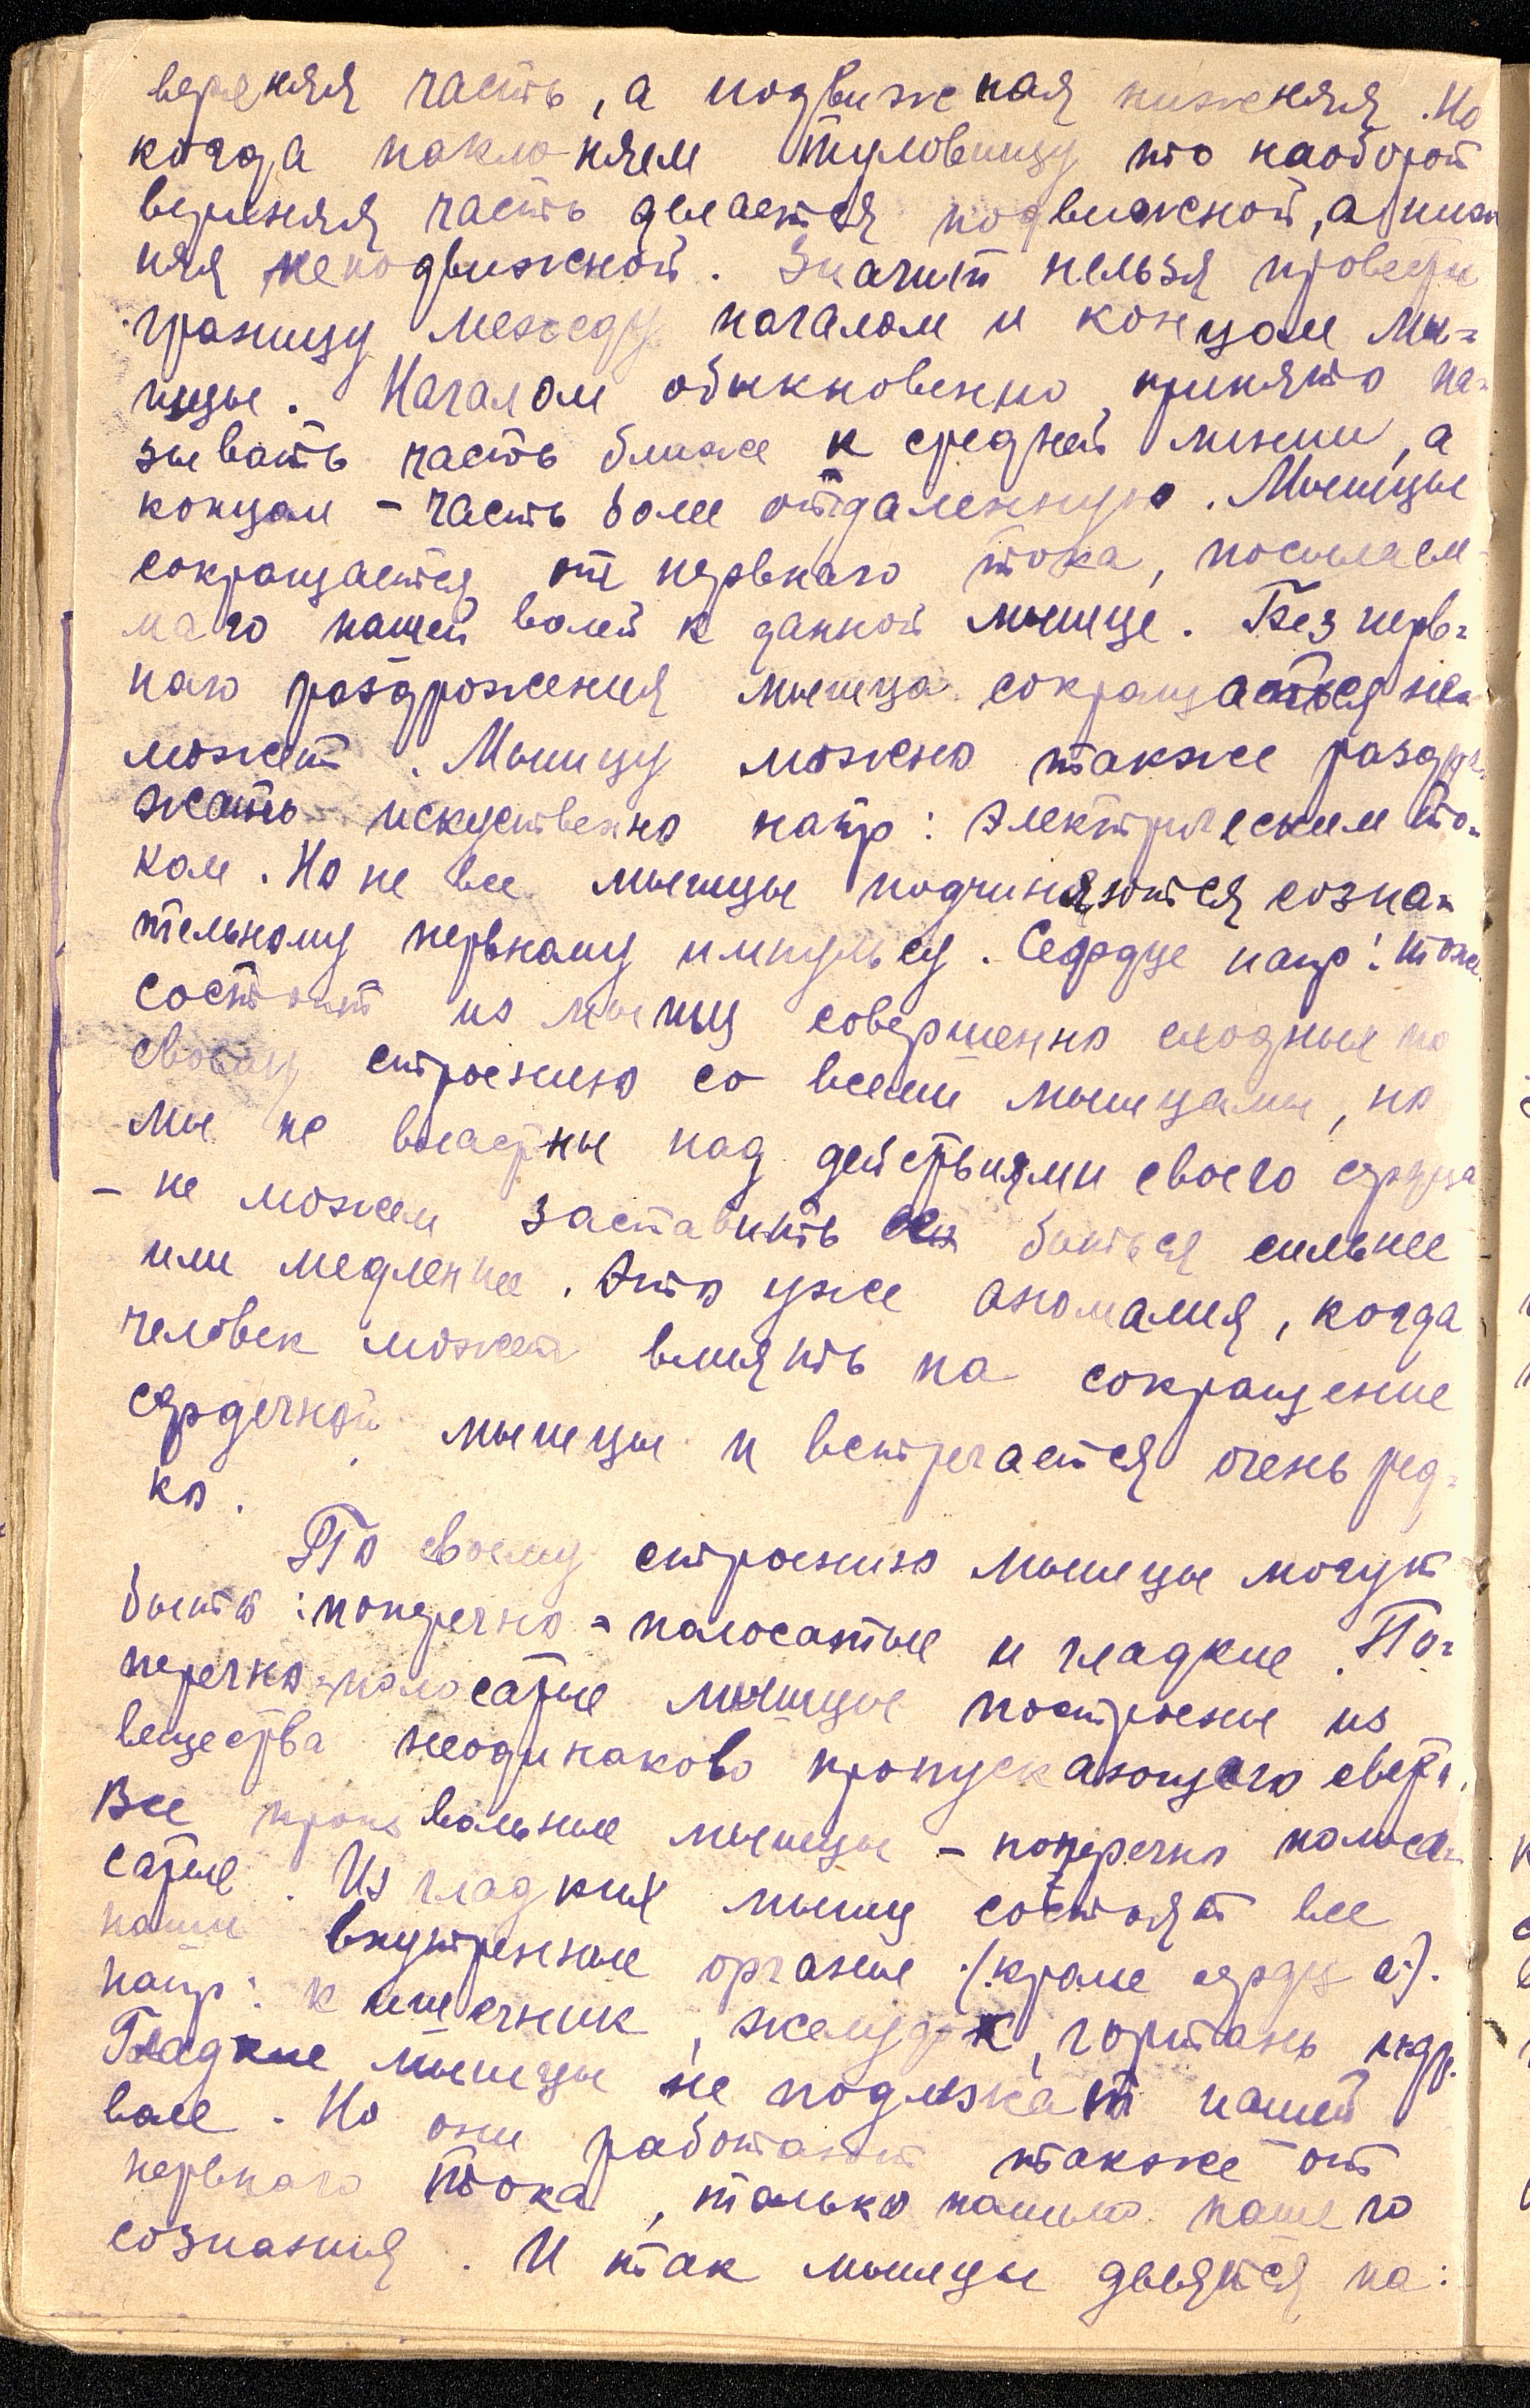 верхняя часть, а подвижная нижняя. Но
когда наклоняем туловищу то наоборот
верхняя часть делается подвижной, а ниж
няя неподвижной. Значит нельзя провести
границу между началом и концом мы=
шцы. Началом обыкновенно принято на=
зывать часть ближе к средней линии, а
концом - часть боле отдаленную. Мышцы
сокращается от нервнаго тока, посылаем
маго нашей волей к данной мышце. Без нерв=
наго раздрожения мышца сокращаться не
может. Мышцу можно также раздра
жать искуственно напр: электрическим то=
ком. Но не все мышцы подчиняются созна=
тельному нервному импульсу. Сердце напр: тоже
состоит из мышц совершенно сходных по
своему строению со всеми мышцами, но
мы не властны над действиями своего сердца
- не можем заставить биться сильнее
или медленнее. Это уже аномалия, когда
человек может влиять на сокращение
сердечной мышцы и встречается очень ред=
ко.
По своему строению мышцы могут
быть: поперечно=полосатые и гладкие. По=
перечно=полосатые мышцы построены из
вещества неодинаково пропускающего свет.
Все произвольные мышцы - поперечно полоса=
сатые. Из гладких мышц состоят все
наши внутренние органы (кроме сердца).
напр: кишечник, желудок, гортань и др.
Гладкие мышцы не подлежат нашей
воле. Но они работают также от
нервнаго тока, только помимо нашего
сознания. И так мышцы делятся на: